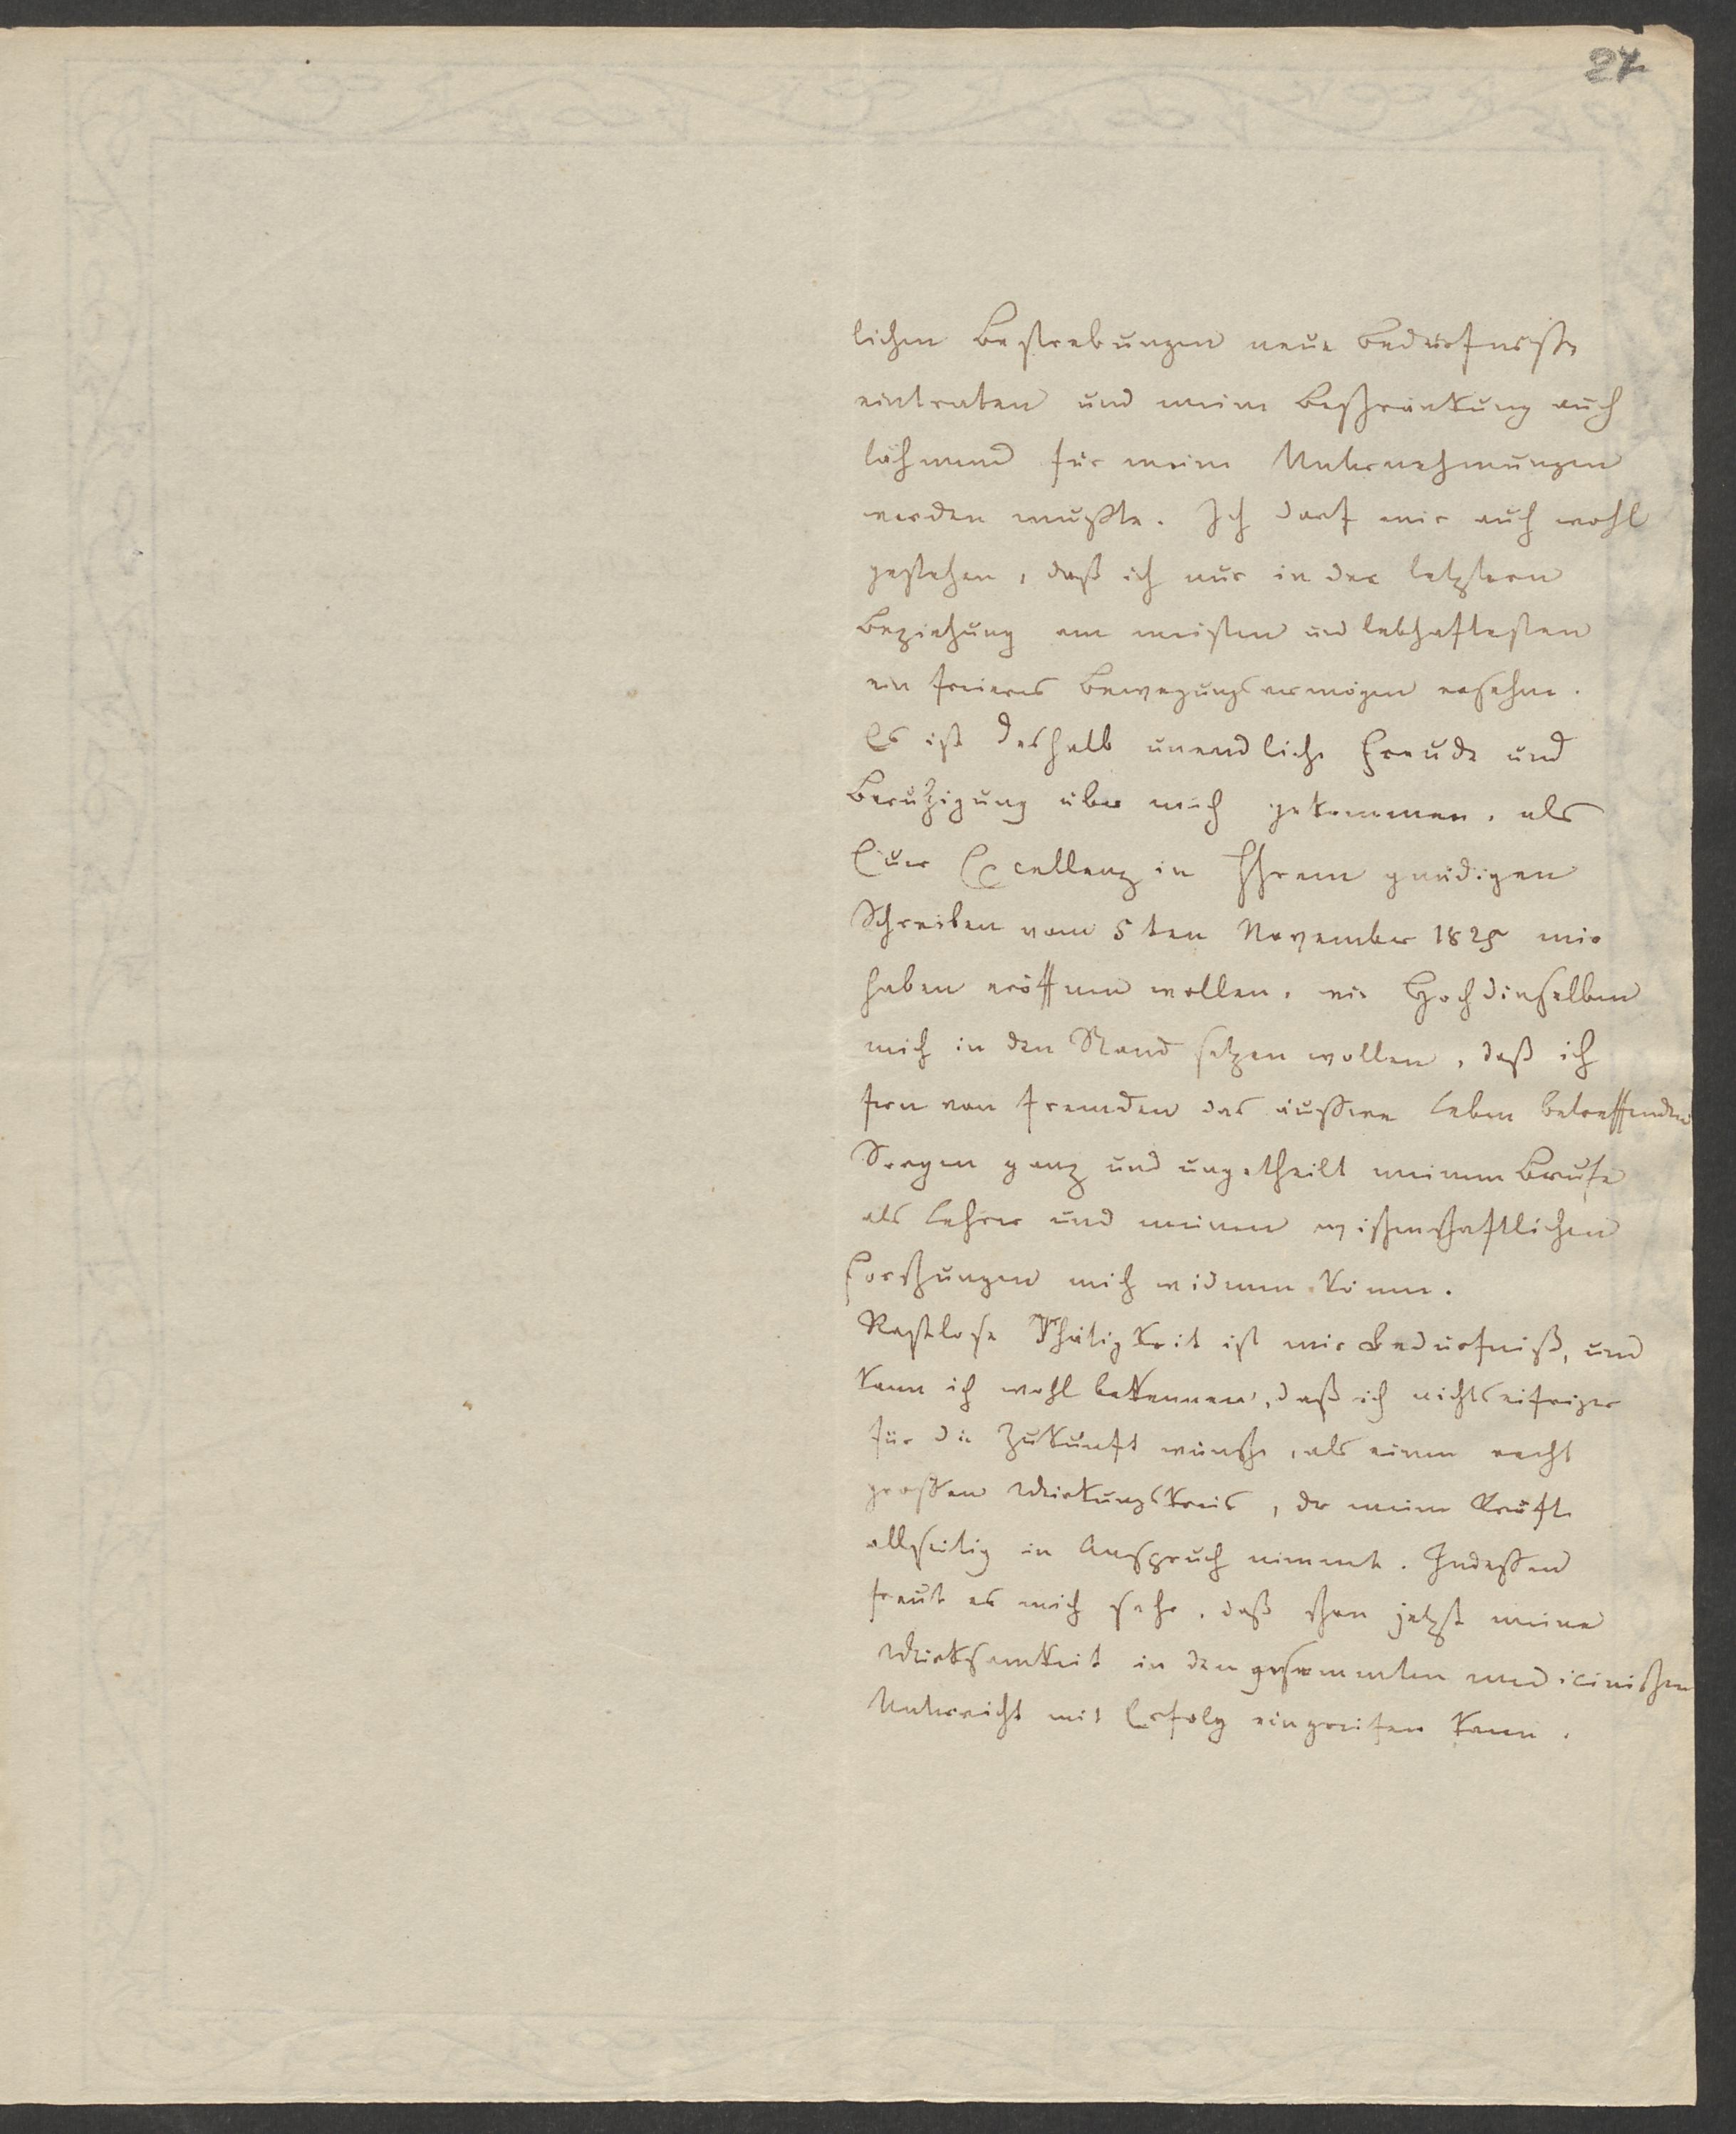 27
lichen Bestrebungen neue Bedürfnisse
eintraten und meine Beschränkung auch
lähmend für meine Unternehmungen
werden mußte. Ich darf mir auch wohl
gestehen, daß ich nur in der letztern
Beziehung am meisten und lebhaftesten
ein freieres Bewegungsvermögen ersehne.
Es ist deshalb unendliche Freude und
Beruhigung über mich gekommen, als
Euer Excellenz in Ihrem gnädigen
Schreiben vom 5ten November 1825 mir
haben eröffnen wollen, wie Hochdieselben
mich in den Stand setzen wollen, daß ich
fern von fremden das äußere Leben betreffenden
Sorgen ganz und ungetheilt meinem Berufe
als Lehrer und meinen wissenschaftlichen
Forschungen mich widmen könne.
Rastlose Thätigkeit ist mir Bedürfniß, und
kann ich wohl bekennen, daß ich nichts eifriger
für die Zukunft wünsche, als einen recht
großen Wirkungskreis, der meine Kräfte
allseitig in Anspruch nimmt. Indessen
freut es mich sehr, daß schon jetzt meine
Wirksamkeit in den gesammten medicinischen
Unterricht mit Erfolg eingreifen kann.